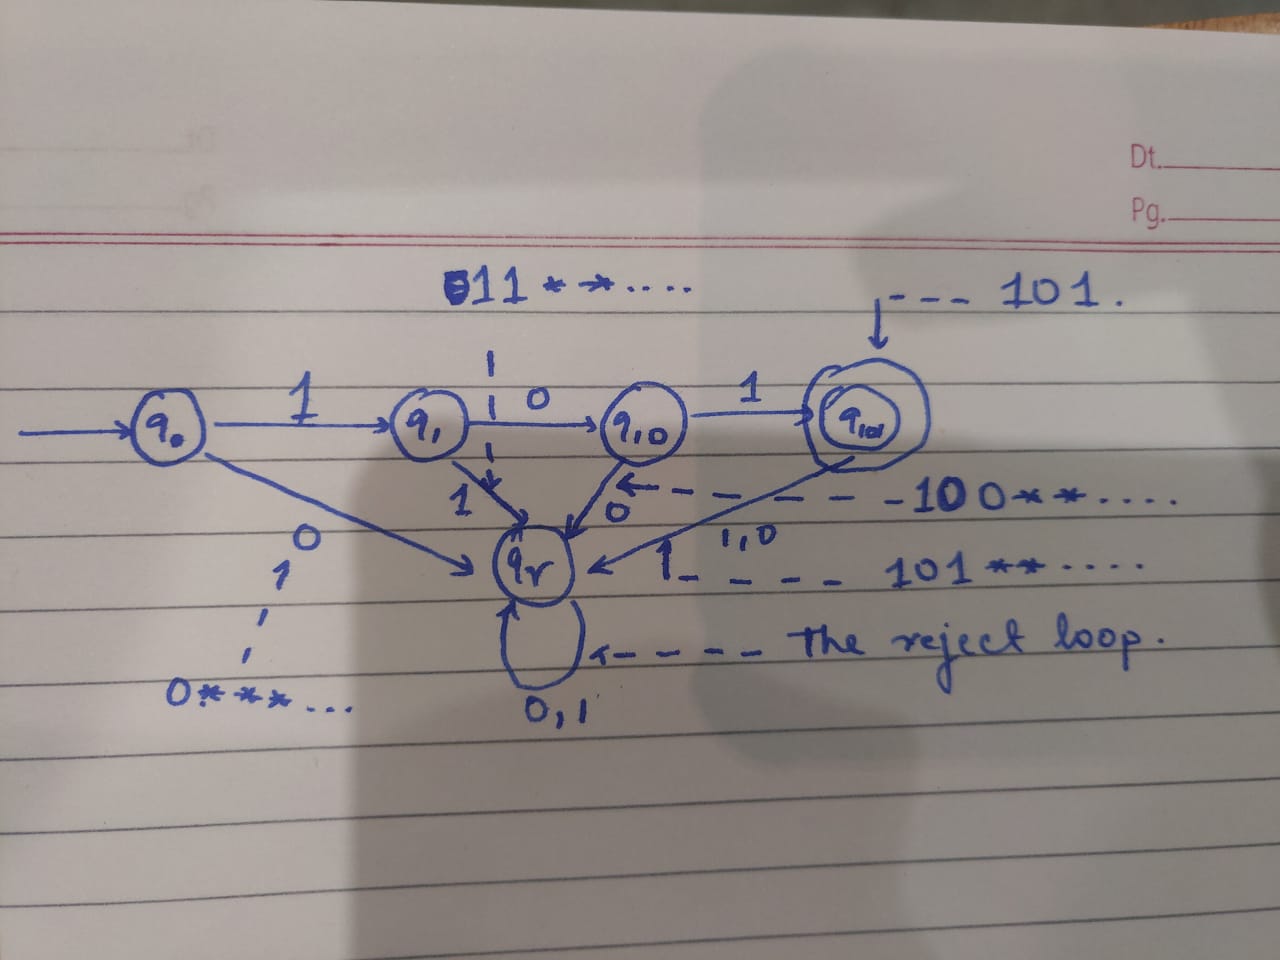 Dt.
Pg.
11 * * ....
101.
1 0 1
q₀ q₁ q₁₀ q₁₀₁
1 0 100 * * ....
0 1,0
qr
1 101 * * ....
The reject loop.
0 * * * ...
0,1